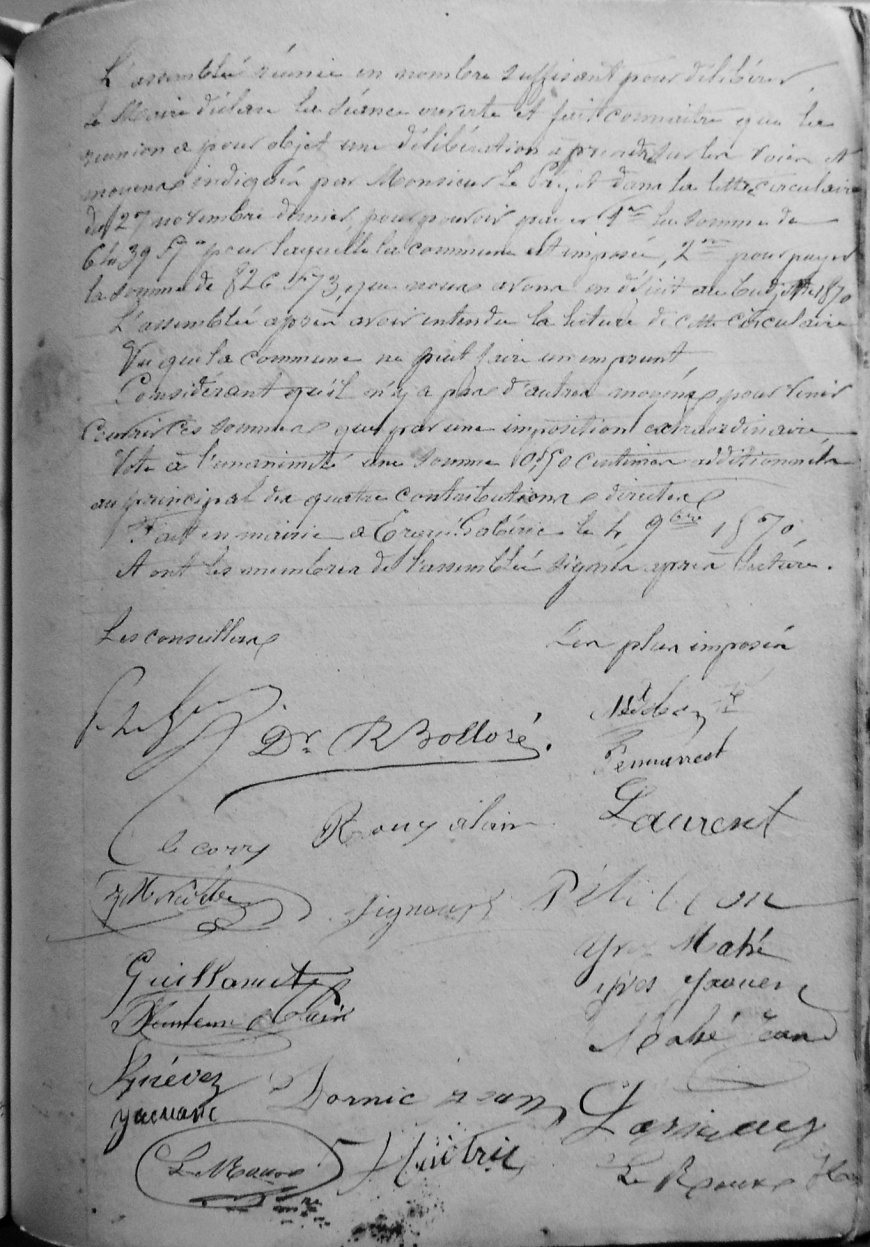 L'assemblée réunie en nombre suffisant pour délibérer
le Maire déclare la séance ouverte et fait connaitre que la
reunion a pour objet une délibération a prendre sur les voies et
moyens indiqués par Monsieur le Préfet dans la lettre circulaire
du 27 novembre dernier, pour pouvoir payer 1nt la somme de
pour laquelle la commune est imposée, 2nt pour payer
la somme de 826 f 73, que nous avons en déficit au budget de 1870
L'assemblée après avoir entendu la lecture de cette circulaire
Vu que la commune ne peut faire un emprunt
Considérant qu'il n'y a pas d'autres moyens pour venir
couvrir ces sommes que par une imposition extraordinaire
Vote à l'unanimité une somme centimes additionnels
au principal des quatre contributions directes
Fait en mairie a Ergué Gabéric le 4 9bre 1870
et ont les membres de l'assemblée signés après lecture.
Les conseillers
Les plus imposés
Dr. R Bolloré.
Pennarest
Laurent
Le corre Rouy alain
Signour Pétillon
Yves Mahé
Guillamet
Yves
Mahé Jean
Quévez
Dornic Jean
Huitric
Le Roux